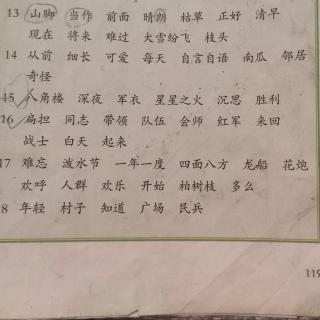 13 山脚 当作 前面 晴朗 枯草 正好 清早
现在 将来 难过 大雪纷飞 枝头
14 从前 细长 可爱 每天 自言自语 南瓜 邻居
奇怪
15 八角楼 深夜 军衣 星星之火 沉思 胜利
16 扁担 同志 带领 队伍 会师 红军 来回
战士 白天 起来
17 难忘 泼水节 一年一度 四面八方 龙船 花炮
欢呼 人群 欢乐 开始 柏树枝 多么
8 年轻 村子 知道 广场 民兵
119